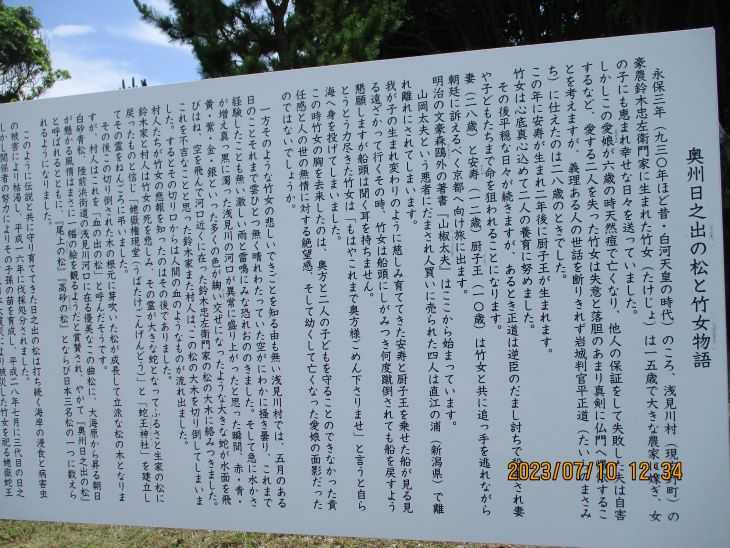 奥州日之出の松と竹女物語
永保三年(九三〇年ほど昔・白河天皇の時代)のころ、浅見川村(現 町)の
豪農鈴木忠左衛門家に生まれた竹女(たけじょ)は一五歳で大きな農家に嫁ぎ、女
の子にも恵まれ幸せな日々を送っていました。
しかしこの愛娘が八歳の時天然痘で亡くなり、他人の保証をして失敗した夫は自害
するなど、愛する二人を失った竹女は失意と落胆のあまり真剣に仏門へ すること
とを考えますが、義理ある人の世話を断りきれず岩城判官平正道(たいらのまさみ
ち)に仕えたのは二八歳のときでした。
この年に安寿が生まれ二年後に厨子王が生まれます。
竹女は心底真心込めて二人の養育に努めました。
その後平穏な日々が続きますが、あるとき正道は逆臣のだまし討ちで され妻
や子どもたちまで命を狙われることになります。
妻(二八歳)と安寿(一二歳)厨子王(一〇歳)は竹女と共に追っ手を逃れながら
朝廷に訴えるべく京都へ向け旅に出ます。
明治の文豪森鴎外の著書「山椒太夫」はここから始まっています。
山岡太夫という悪者にだまされ人買いに売られた四人は直江の浦(新潟県)で離
れ離れにされてしまいます。
我が子の生まれ変わりのように慈しみ育ててきた安寿と厨子王を乗せた船が見る見
る遠ざかって行くその時、竹女は船頭にしがみつき何度蹴倒されても船を戻すよう
懇願しますが船頭は聞く耳を持ちません。
とうとう力尽きた竹女は「もはやこれまで奥方様ごめん下さりませ」と言うと自ら
海へ身を投げてしまいました。
この時竹女の胸を去来したのは、奥方と二人の子どもを守ることのできなかった責
任感と人の世の無情に対する絶望感、そして幼くして亡くなった愛娘の面影だった
のではないでしょうか。
一方そのような竹女の悲しいできごとを知る由も無い浅見川村では、五月のある
日のことそれまで雲ひとつ無く晴れわたっていた空がにわかに掻き曇り、これまで
経験したことも無い激しい雨と雷鳴にみな恐れおののきました。そして急に水かさ
が増え真っ黒に濁った浅見川の河口が異常に盛り上がったと思った瞬間、赤・青・
黄・紫・金・銀といった多くの色が綯い交ぜになったような大きな蛇が水面を飛
びはね、空を飛んで河口近くに在った鈴木忠左衛門家の松の大木に絡みつきました。
これを不吉なことと思った鈴木家また村人は、この松の大木を切り倒してしまいま
した。するとその切り口からは人間の血のようなものが流れ出ました。
村人たちが竹女の悲報を知ったのはその後でありました。
鈴木家と村人は竹女の死を悲しみ、その霊が大きな蛇となってふるさと生家の松に
戻ったものと信じ「姥嶽権現堂(うばたけごんげんどう)」と「蛇王神社」を建立し
てその霊をねんごろに弔いました。
その後この切り倒された松の根元に芽吹いた松が成長して立派な松の木となりま
すが、村人はこれを「血の出の松」と呼んだそうです。
白砂青松、陸前浜街道の浅見川河口に在る優美なこの曲松に、大海原から昇る朝日
が懸かる風情はまさに一幅の絵を観るようだと賞賛され、やがて『奥州日之出の松』
と呼ばれるとともに、「尾上の松」「高砂の松」とならび日本三名松の一つに数えら
れるようになりました。
このように伝説と共に守り育ててきた日之出の松は打ち続く海岸の浸食と病害虫
の被害により枯渇し、平成一六年に伐採処分されました。
しかし関係者の努力によりその子孫の苗を育成し、平成二八年七月に三代目の日之
により被災した竹女を祀る姥嶽蛇王
2023/07/10 12:34